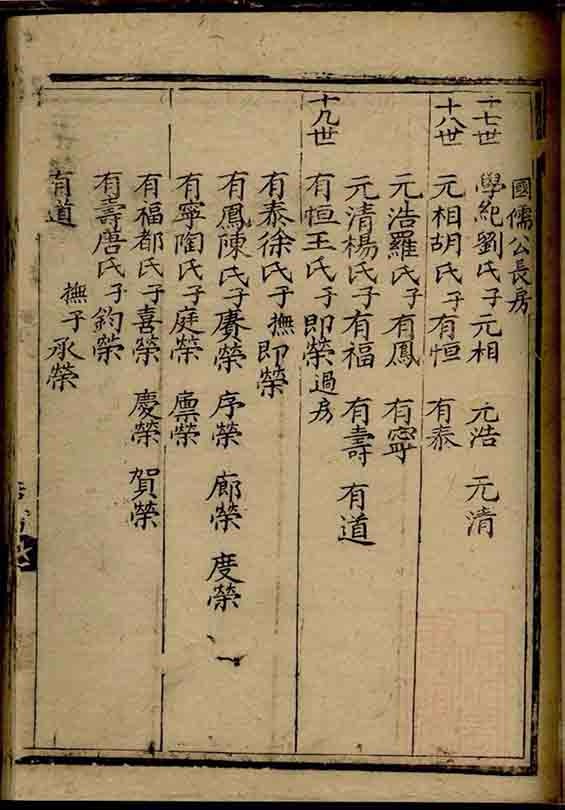 國儒公長房
十七世 學紀劉氏子元相 元浩 元清
十八世 元相胡氏子有恒 有泰
元浩羅氏子有鳳 有寧
元清楊氏子有福 有壽 有道
十九世 有恒王氏子即榮過房
有泰徐氏子撫即榮
有鳳陳氏子賡榮 序榮 廊榮 度榮
有寧陶氏子庭榮 廪榮
有福都氏子喜榮 慶榮 賀榮
有壽唐氏子鈞榮
有道 撫子承榮